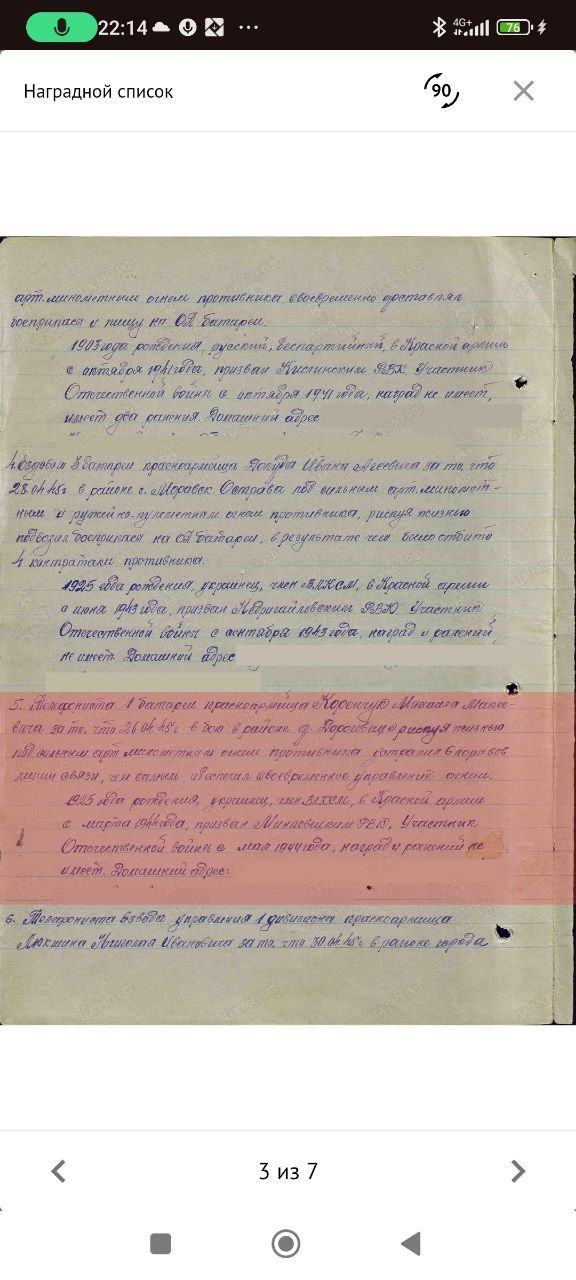 22:14
4G+
76
Наградной список
90
арт. минометным огнем противника своевременно доставлял
боеприпасы и пищу на ОП батареи.
1903 года рождения, русский, беспартийный, в Красной армии
с октября 1941 года, призван РВК Участник
Отечественной войны с октября 1941 года, наград не имеет,
имеет два ранения. Домашний адрес
4. Ездового 3 батареи красноармейца Ивана за то, что
28.04.45г в районе г. Моравск. Острава под сильным арт. миномет-
ным и ружейно-пулеметным огнем противника, рискуя жизнью
подвозил боеприпасы на ОП батареи, в результате чего было отбито
4 контратаки противника.
1925 года рождения, украинец, член ВЛКСМ, в Красной армии
с июня 1943 года, призван Недригайловским РВК Участник
Отечественной войны с сентября 1943 года, наград и ранений
не имеет. Домашний адрес
5. Телефониста 1 батареи красноармейца Михаила
вича за то, что 26.04.45г в бою в районе рискуя жизнью
под сильным арт минометным огнем противника устранил 6 порывов
линии связи, чем самым обеспечил своевременное управление огнем.
1925 года рождения, украинец, член ВЛКСМ, в Красной армии
с марта 1944 года, призван Миньковецким РВК, Участник
Отечественной войны с мая 1944 года, наград и ранений не
имеет. Домашний адрес:
6. Телефониста взвода управления 1 дивизиона красноармейца
Николая Ивановича за то, что 30.04.45г в районе города
3 из 7